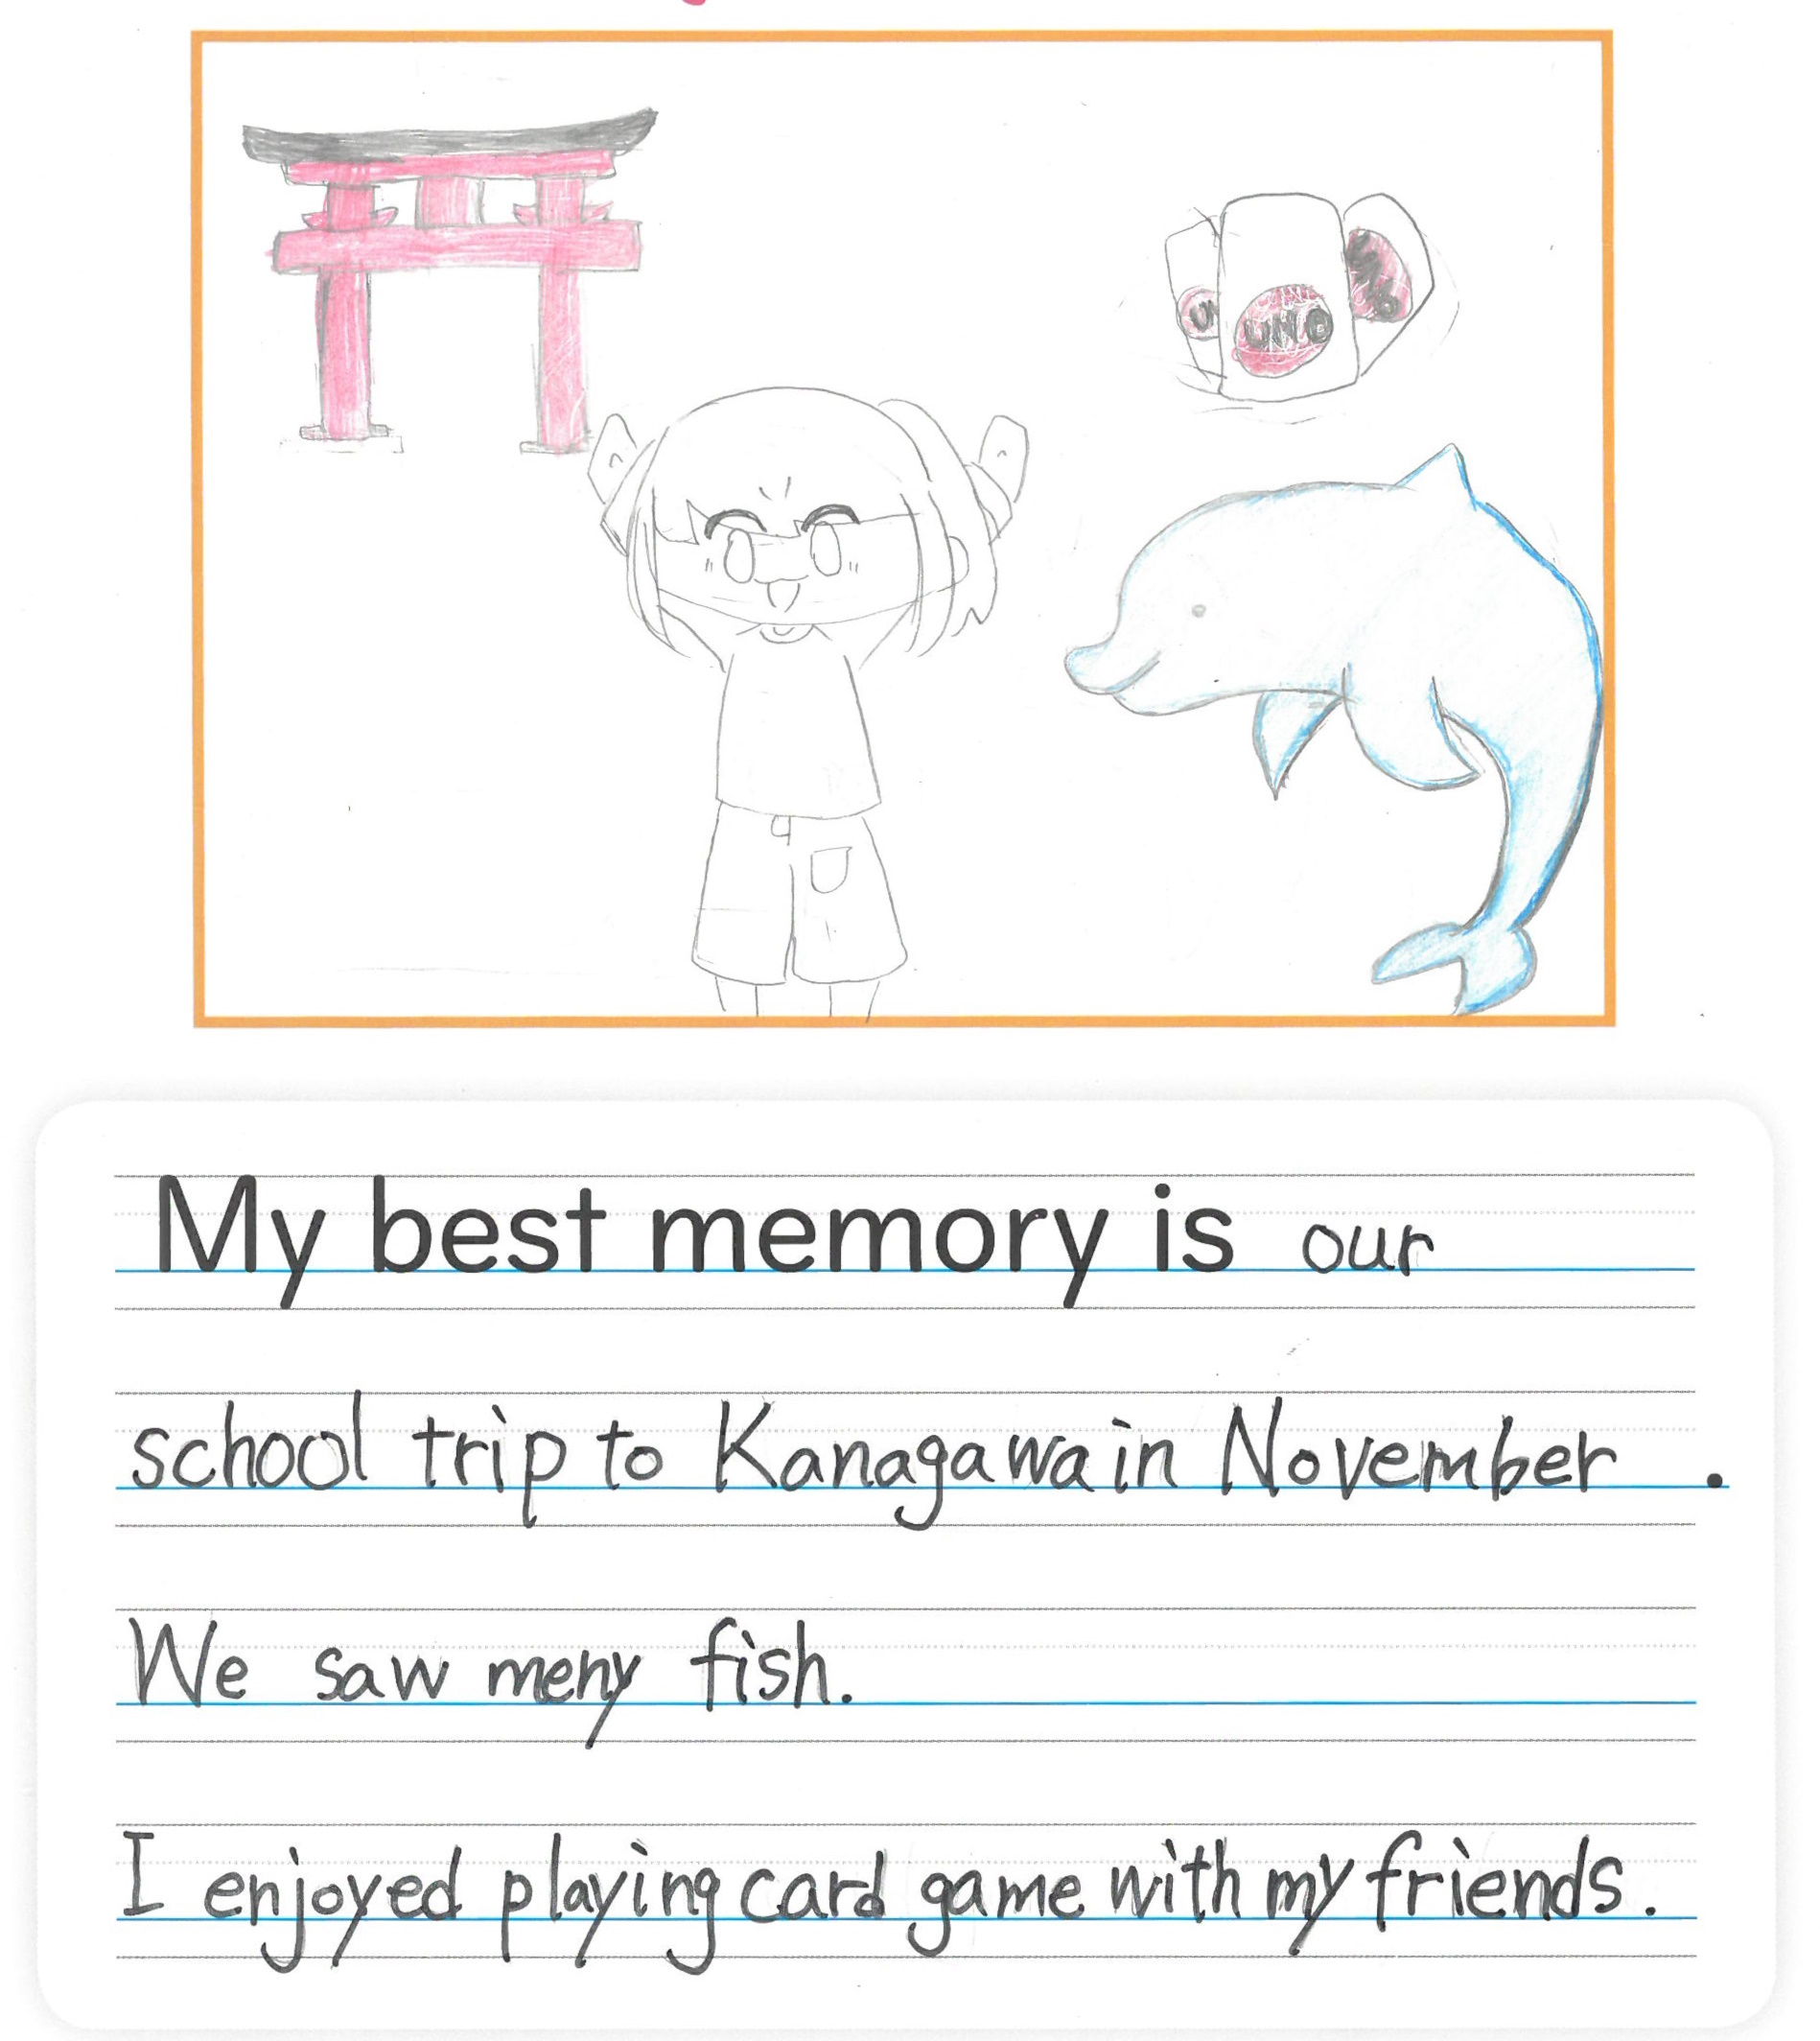 UN
UNO
UNO
My best memory is our
school trip to Kanagawa in November .
We saw meny fish.
I enjoyed playing card game with my friends.